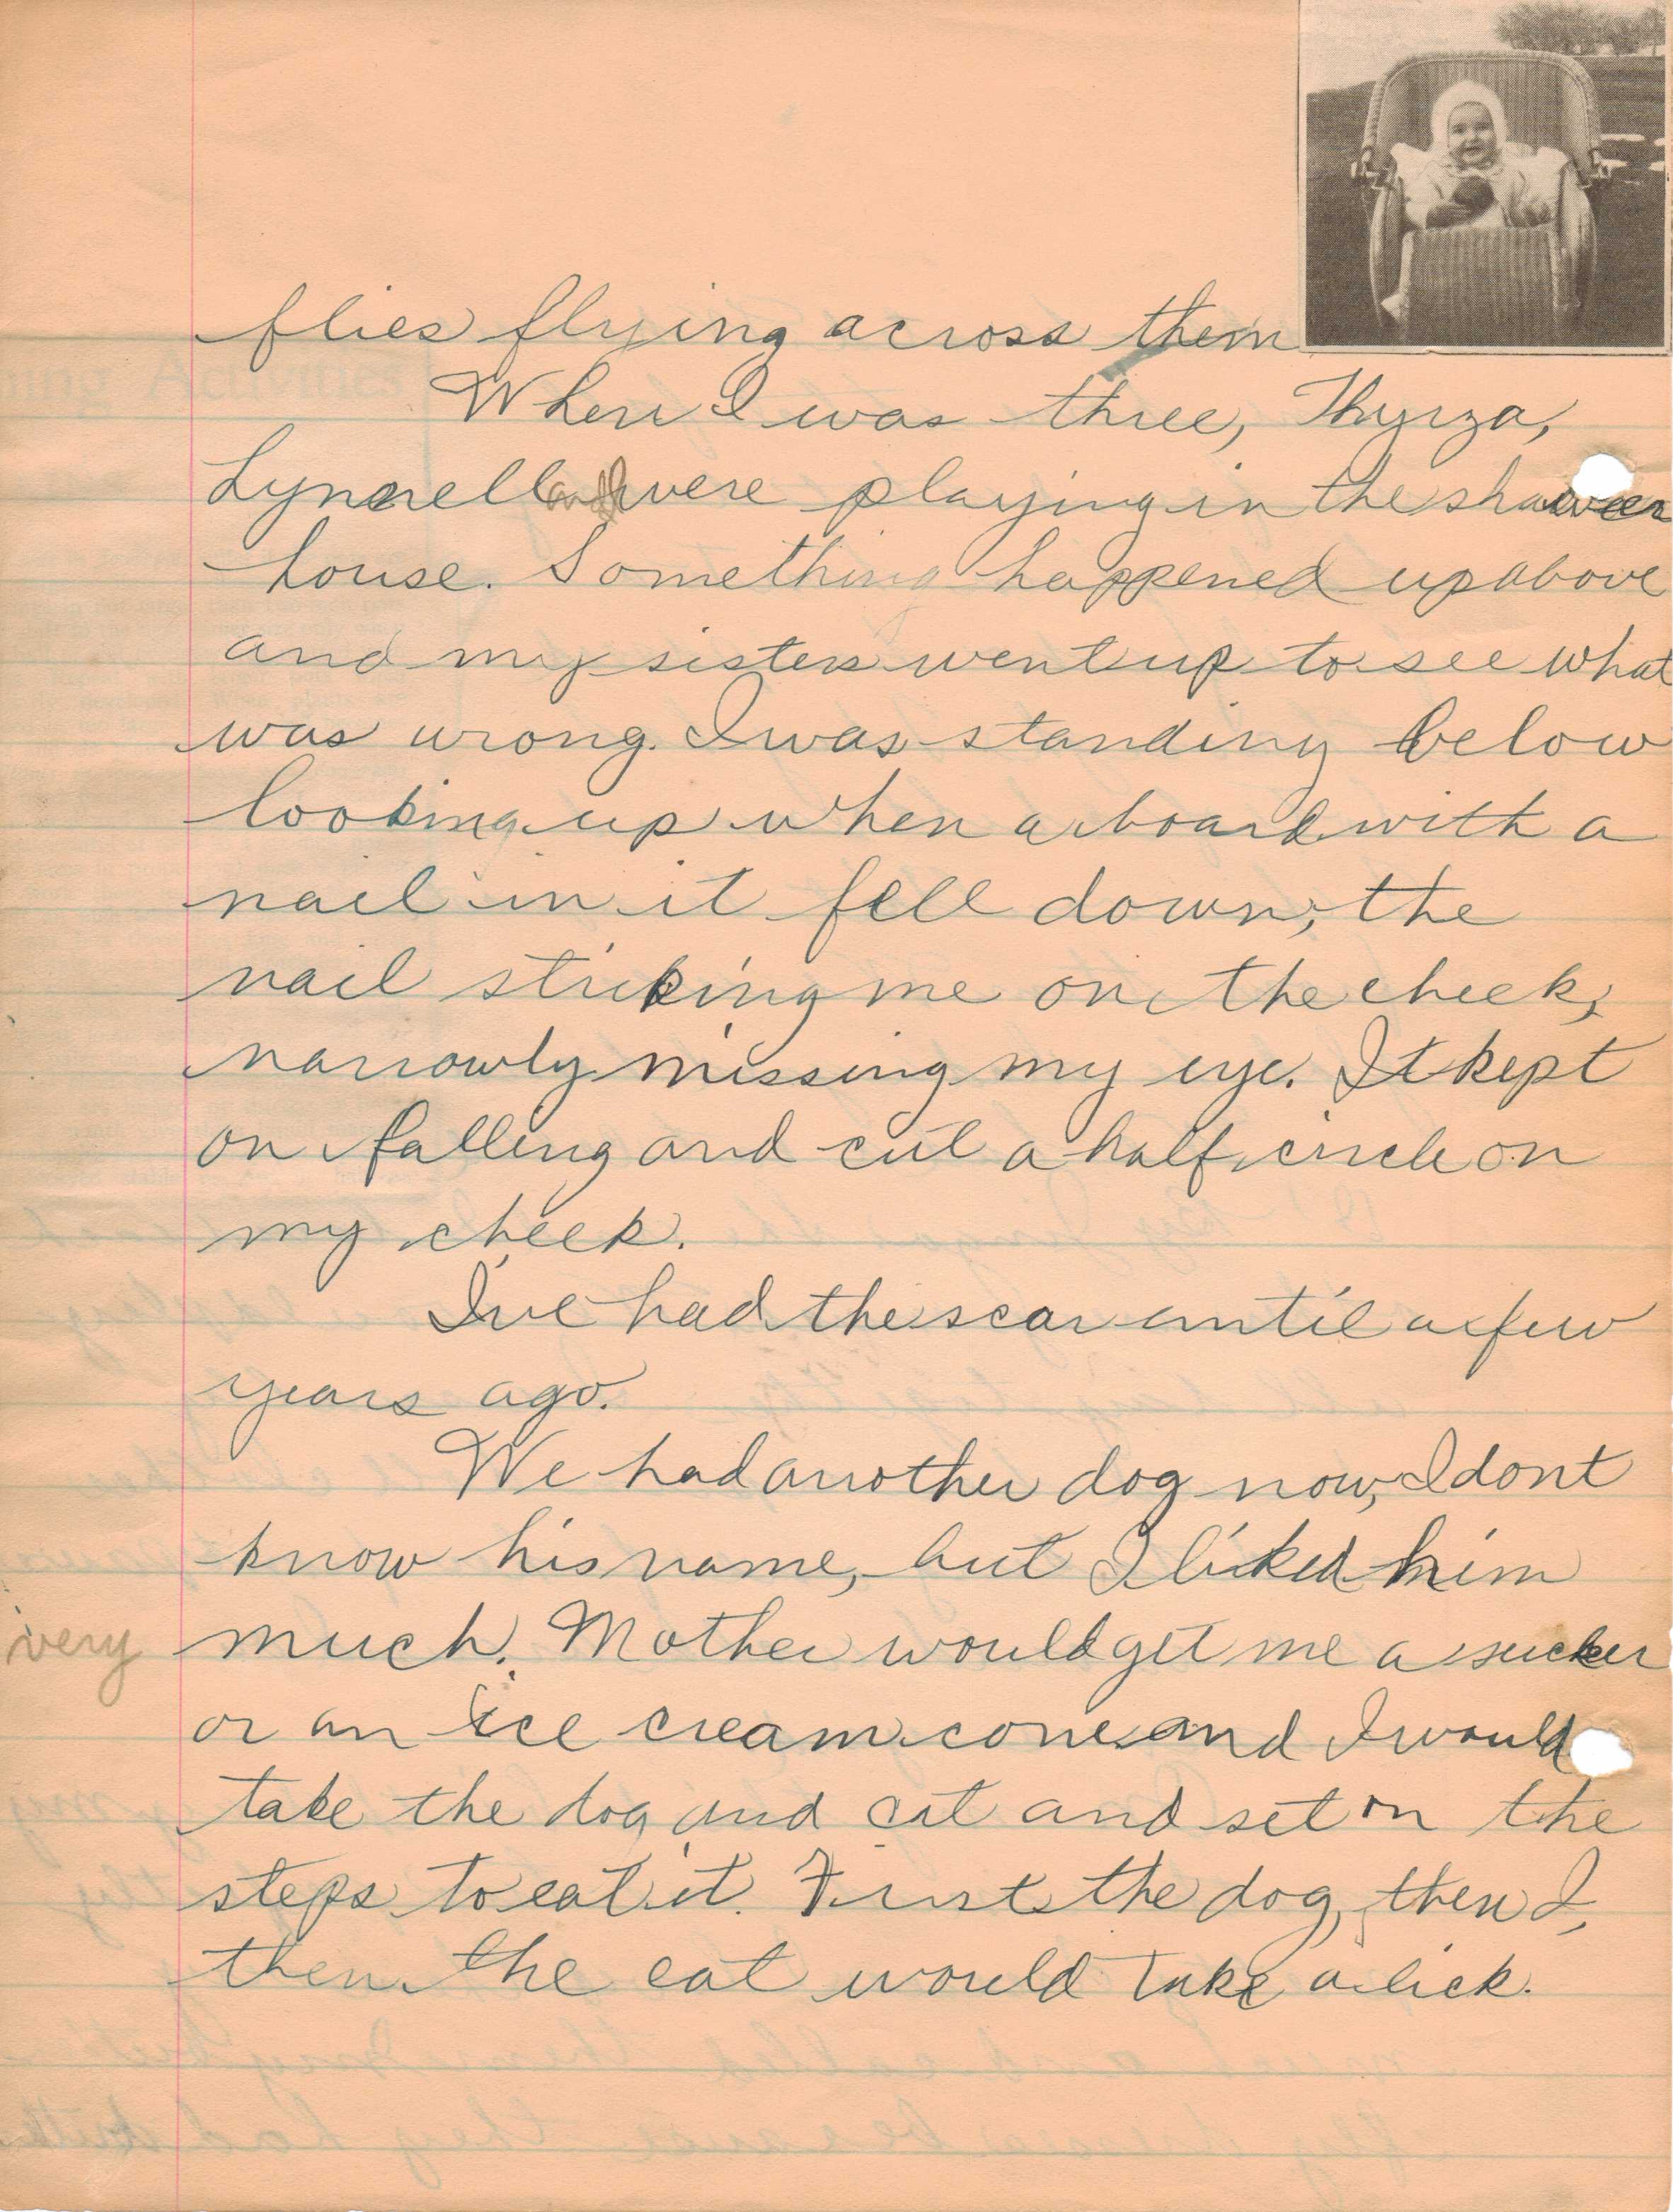 flies flying across them
When I was three, Thyrza,
Lynnell and I were playing in the shower
house. Something happened up above
and my sisters went up to see what
was wrong. I was standing below
looking up when a board with a
nail in it fell down, the
nail striking me on the cheek,
narrowly missing my eye. It kept
on falling and cut a half circle on
my cheek.
I've had the scar until a few
years ago.
We had another dog now, I dont
know his name, but I liked him
very much. Mother would get me a sucker
or an ice cream cone and I would
take the dog and cat and set on the
steps to eat it. First the dog, then I,
then the cat would take a lick.